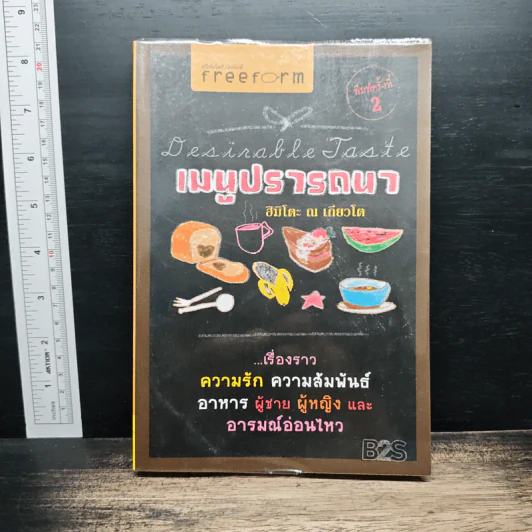 freeform
พิมพ์ครั้งที่
2
Desirable Taste
เมนูปรารถนา
ฮิมิโตะ ณ เกียวโต
...เรื่องราว
ความรัก ความสัมพันธ์
อาหาร ผู้ชาย ผู้หญิง และ
อารมณ์อ่อนไหว
B2S